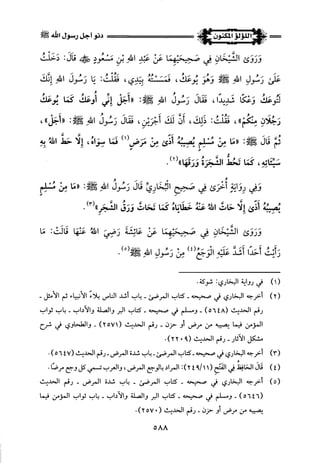 اللؤلؤ المكنون
دنو أجل رسول الله ﷺ
وَرَوَى الشَّيْخَانِ فِي صَحِيحَيْهِمَا عَنْ عَبْدِ اللهِ بْنِ مَسْعُودٍ ﷺ قَالَ: دَخَلْتُ
عَلَى رَسُولِ اللهِ ﷺ وَهُوَ يُوعَكُ، فَمَسِسْتُهُ بِيَدِي، فَقُلْتُ: يَا رَسُولَ اللهِ إِنَّكَ
لَتُوعَكُ وَعْكًا شَدِيدًا، فَقَالَ رَسُولُ اللهِ ﷺ: «أَجَلْ إِنِّي أُوعَكُ كَمَا يُوعَكُ
رَجُلَانِ مِنْكُمْ»، فَقُلْتُ: ذَلِكَ، أَنَّ لَكَ أَجْرَيْنِ، فَقَالَ رَسُولُ اللهِ ﷺ: «أَجَلْ»،
ثُمَّ قَالَ ﷺ: «مَا مِنْ مُسْلِمٍ يُصِيبُهُ أَذًى مِنْ مَرَضٍ(١) فَمَا سِوَاهُ، إِلَّا حَطَّ اللهُ بِهِ
سَيِّئَاتِهِ، كَمَا تَحُطُّ الشَّجَرَةُ وَرَقَهَا»(٢).
وَفِي رِوَايَةٍ أُخْرَى فِي صَحِيحِ الْبُخَارِيِّ قَالَ رَسُولُ اللهِ ﷺ: «مَا مِنْ مُسْلِمٍ
يُصِيبُهُ أَذًى إِلَّا حَاتَّ اللهُ عَنْهُ خَطَايَاهُ كَمَا تَحَاتُّ وَرَقُ الشَّجَرِ»(٣).
وَرَوَى الشَّيْخَانِ فِي صَحِيحَيْهِمَا عَنْ عَائِشَةَ رَضِيَ اللهُ عَنْهَا قَالَتْ: مَا
رَأَيْتُ أَحَدًا أَشَدَّ عَلَيْهِ الْوَجَعُ(٤) مِنْ رَسُولِ اللهِ ﷺ(٥).
(١) في رواية البخاري: شوكة.
(٢) أخرجه البخاري في صحيحه - كتاب المرضى - باب أشد الناس بلاءً الأنبياء ثم الأمثل -
رقم الحديث (٥٦٤٨) - ومسلم في صحيحه - كتاب البر والصلة والآداب - باب ثواب
المؤمن فيما يصيبه من مرض أو حزن - رقم الحديث (٢٥٧١) - والطحاوي في شرح
مشكل الآثار - رقم الحديث (٢٢٠٩).
(٣) أخرجه البخاري في صحيحه - كتاب المرضى - باب شدة المرض - رقم الحديث (٥٦٤٧).
(٤) قال الحافظ في الفتح (٢٤٩/١١): المراد بالوجع المرض، والعرب تسمي كل وجع مرضًا.
(٥) أخرجه البخاري في صحيحه - كتاب المرضى - باب شدة المرض - رقم الحديث
(٥٦٤٦) - ومسلم في صحيحه - كتاب البر والصلة والآداب - باب ثواب المؤمن فيما
يصيبه من مرض أو حزن - رقم الحديث (٢٥٧٠).
٥٨٨